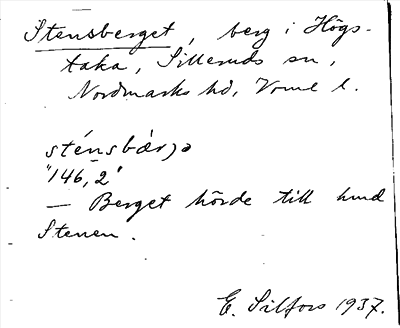 Stensberget, berg i Högs-
taka, Silleruds sn,
Nordmarks hd, Vrml l.
sténsbärjə
"146, 2"
— Berget hörde till hmd
Stenen.
E. Silfors 1937.